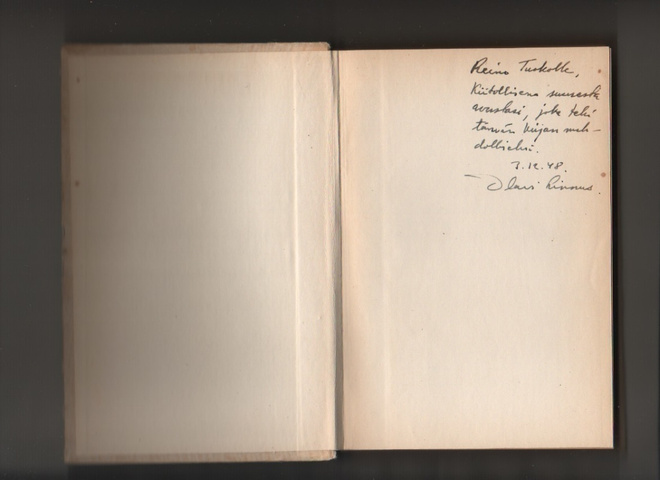 Reino Tuskolle,
Kiitollisena suuresta
avustasi, joka teki
tämän kirjan mah-
dolliseksi.
3.12.48.
Olavi Linnus.